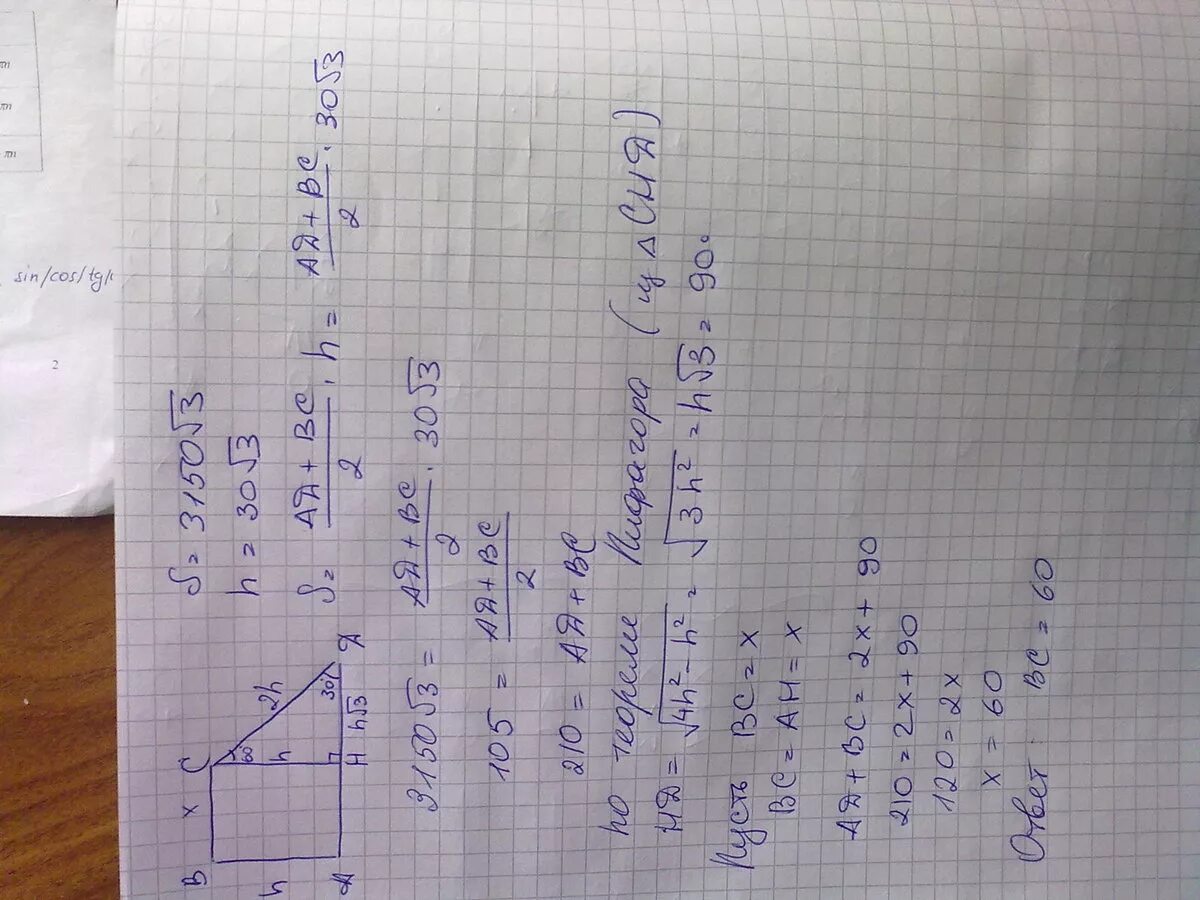 sin/cos/tg/
2
B x C
h
60
h
2h
30
A H h√3 Д
S = 3150√3
h = 30√3
S = (AД + BC)/2 · h = (AД + BC)/2 · 30√3
3150√3 = (AД + BC)/2 · 30√3
105 = (AД + BC)/2
210 = AД + BC
по теореме Пифагора (из △ CHД)
HД = √(4h² - h²) = √(3h²) = h√3 = 90.
Пусть BC = x
BC = AH = x
AД + BC = 2x + 90
210 = 2x + 90
120 = 2x
x = 60
Ответ: BC = 60